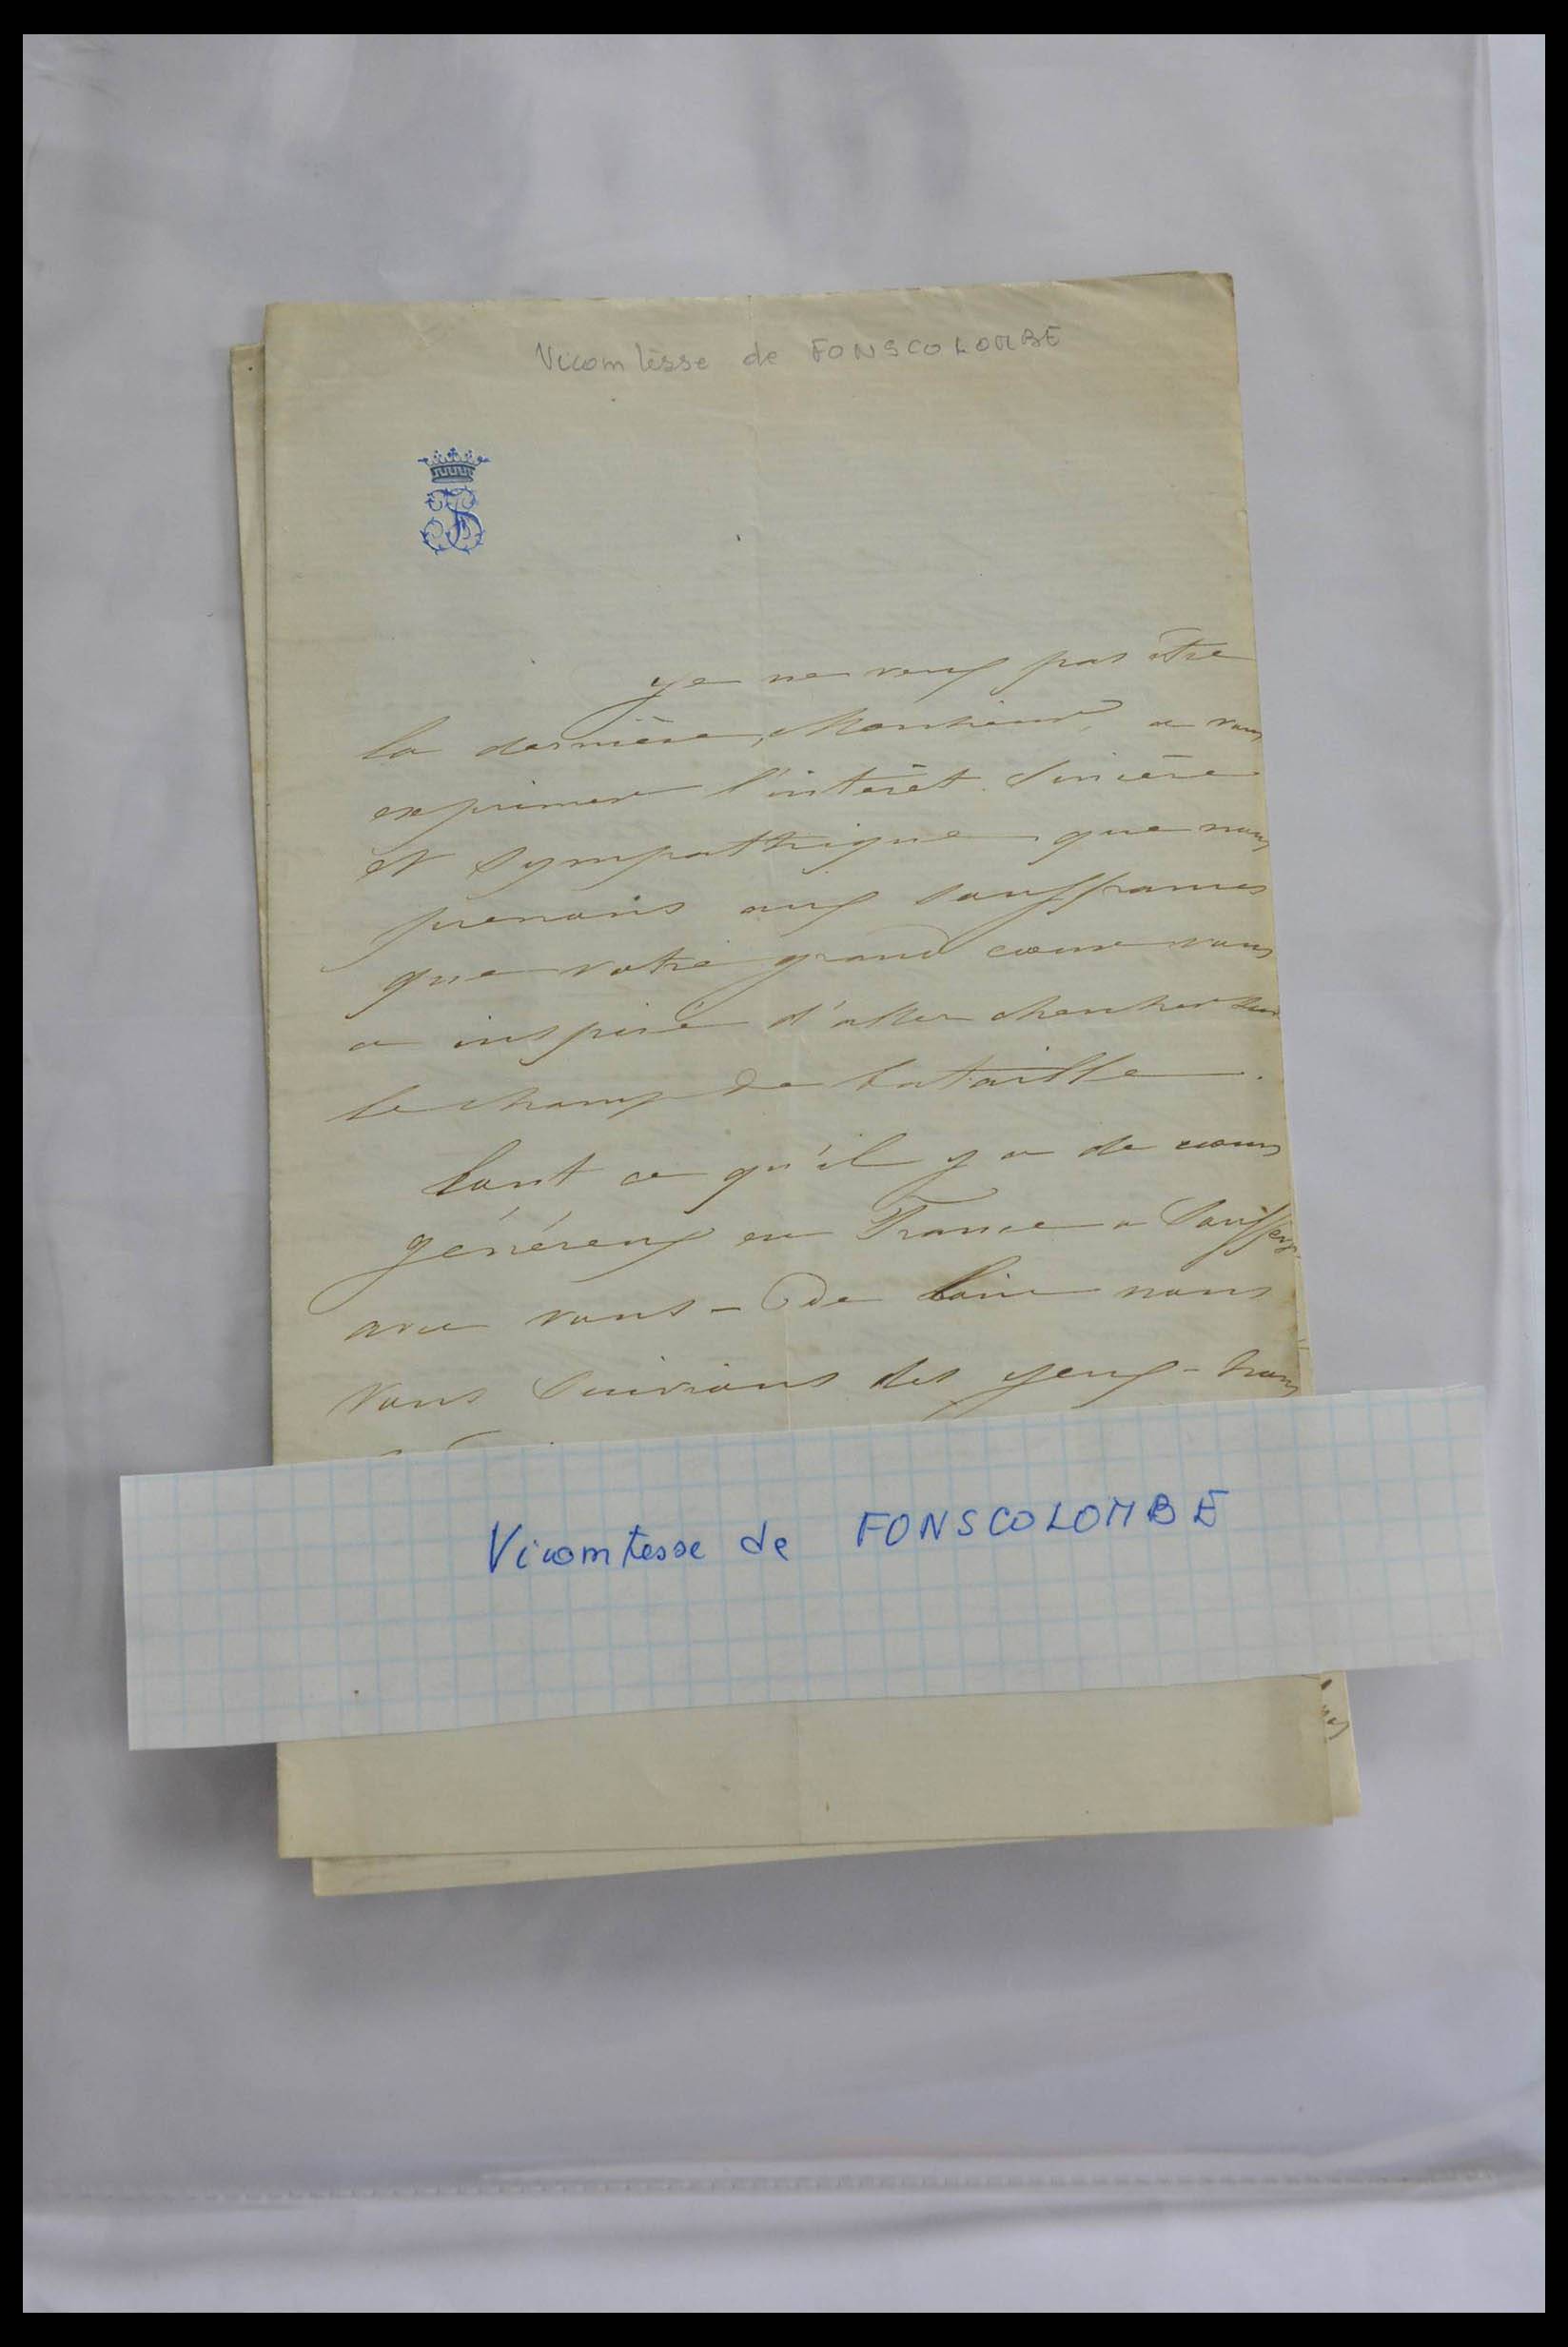 Vicomtesse de FONSCOLOMBE
Je ne veux pas être
la dernière, Monsieur, a vous
exprimer l'intérêt sincère
et sympathique que nous
prenons aux souffrances
que votre grand cœur vous
a inspiré d'aller chercher sur
le champ de bataille.
tout ce qu'il y a de cœurs
généreux en France a souffert
avec vous - De loin nous
vous suivions des yeux -
Vicomtesse de FONSCOLOMBE